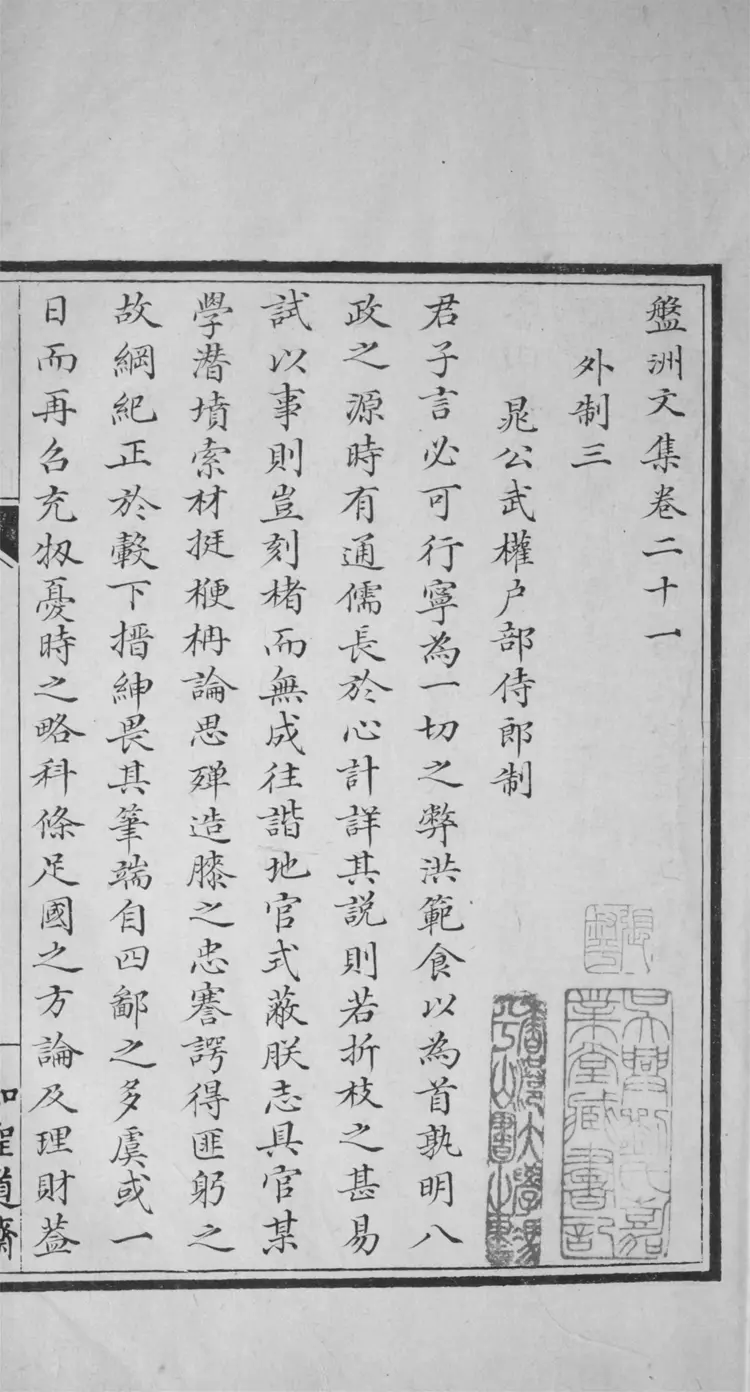 盤洲文集卷二十一
外制三
晁公武權户部侍郎制
君子言必可行寧為一切之弊洪範食以為首孰明八
政之源時有通儒長於心計詳其説則若折枝之甚易
試以事則豈刻楮而無成往諧地官式蔽朕志具官某
學潛墳索材挺楩枏論思殫造膝之忠謇諤得匪躬之
故綱紀正於轂下搢紳畏其筆端自四鄙之多虞或一
日而再召充牣憂時之略科條足國之方論及理財葢
知聖道齋
吳興劉氏嘉
業堂藏書記